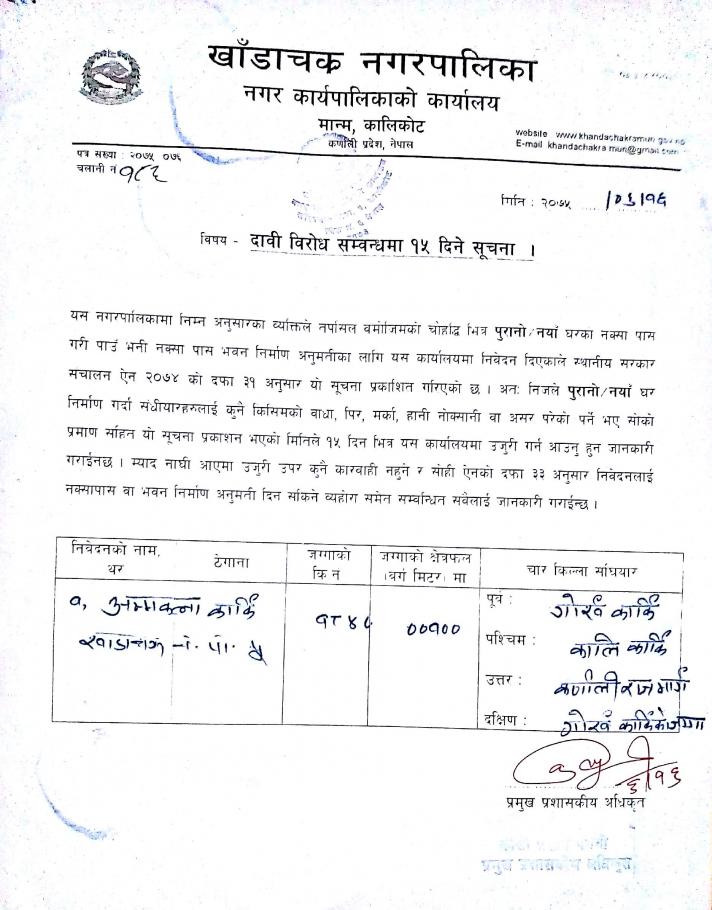 खाँडाचक्र नगरपालिका
नगर कार्यपालिकाको कार्यालय
मान्म, कालिकोट
कर्णाली प्रदेश, नेपाल
website www.khandachakramun.gov.np
E-mail khandachakra.mun@gmail.com
पत्र सख्या : २०७५ ०७६
चलानी नं
मिति : २०७५ /०६/१६
विषय - दावी विरोध सम्वन्धमा १५ दिने सूचना ।
यस नगरपालिकामा निम्न अनुसारका व्यक्तिले तपसिल वमोजिमको चौहद्धि भित्र पुरानो/नयाँ घरका नक्सा पास
गरी पाउँ भनी नक्सा पास भवन निर्माण अनुमतीका लागि यस कार्यालयमा निवेदन दिएकाले स्थानीय सरकार
सचालन ऐन २०७४ को दफा ३१ अनुसार यो सूचना प्रकाशित गरिएको छ । अतः निजले पुरानो/नयाँ घर
निर्माण गर्दा संधीयारहरुलाई कुनै किसिमको वाधा, पिर, मर्का, हानी नोक्सानी वा असर परेको पर्ने भए सोको
प्रमाण सहित यो सूचना प्रकाशन भएको मितिले १५ दिन भित्र यस कार्यालयमा उजुरी गर्न आउनु हुन जानकारी
गराईनछ । म्याद नाघी आएमा उजुरी उपर कुनै कारवाही नहुने र सोही ऐनको दफा ३३ अनुसार निवेदनलाई
नक्सापास वा भवन निर्माण अनुमती दिन सकिने व्यहोरा समेत सम्वन्धित सबैलाई जानकारी गराईन्छ ।
निवेदनको नाम, थर ठेगाना
जग्गाको कि नं
जग्गाको क्षेत्रफल (वर्ग मिटर) मा
चार किल्ला साँघयार
१, कार्कि
००१००
पूर्व : गोर्ख कार्कि
पश्चिम : कालि कार्कि
उत्तर : कर्णाली राजमार्ग
दक्षिण : गोर्ख कार्किकै जग्गा
६/१६
प्रमुख प्रशासकीय अधिकृत
प्रमुख प्रशासकीय अधिकृत